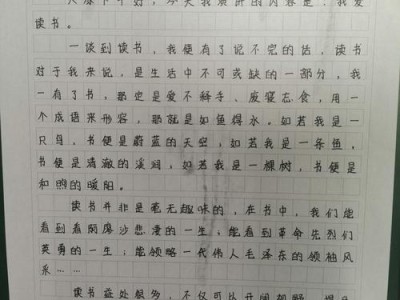 大家下午好，今天我演讲的内容是、我爱
读书。
一谈到读书，我便有了说不完的话，读书
对于我来说，是生活中不可或缺的一部分，我
一有了书，那更是爱不释手、废寝忘食，用一
个成语来形容，那就是如鱼得水。如若我是一
只鸟，书便是蔚蓝的天空，如若我是一条鱼，
书便是清澈的溪涧，如若我是一棵树，书便是
和煦的暖阳。
读书并非是毫无趣味的，在书中，我们能
看到的一生，能看到革命先烈们
英勇的一生，能领略一代伟人毛泽东的领袖风
采……
读书益处极多，不仅可以开阔视野，提升